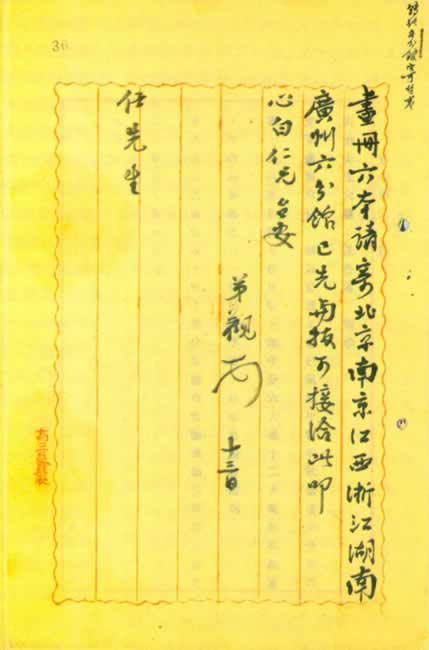 畫冊六本請寄北京南京江西浙江湖南
廣州六分館已先函接可接洽此叩
心白仁兄台安
弟觀丙
十三日
任先生
36